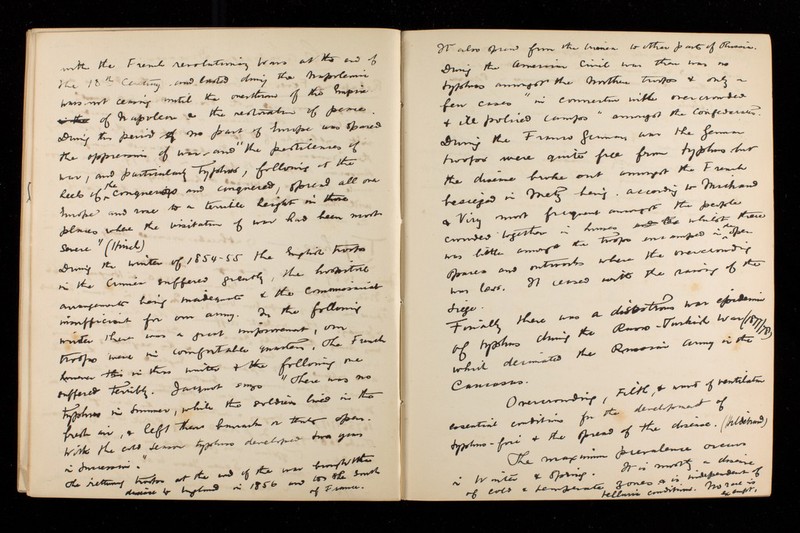 with the French revolutionary wars at the end of
the 18th Century and lasted during the Napoleonic
wars not ceasing until the overthrow of the Empire
of Napoleon & the restoration of peace.
During this period no part of Europe was spared
the oppression of war and "the pestilences of
war, and particularly Typhus, following at the
heels of the conquerors and conquered, spread all over
Europe and rose to a terrible height in those
places where the visitation of war had been most
severe" (Hirsch)
During the winter of 1854-55 the English troops
in the Crimea suffered greatly, the hospital
arrangements being inadequate & the Commissariat
insufficient for our army. In the following
winter there was a great improvement, our
troops were in comfortable quarters. The French
however this in this winter & the following one
suffered terribly. Jacquot says "There was no
typhus in Summer, while the soldiers lived in the
fresh air, & left their barracks or tents open.
With the cold season typhus developed two years
in succession".
The returning troops at the end of the war brought the
disease to England in 1856 and to the South
of France.
It also spread from the Crimea to other parts of Russia.
During the American Civil war there was no
typhus amongst the Northern troops & only a
few cases "in connection with overcrowded
& ill policed camps" amongst the Confederates.
During the Franco German war the German
troops were quite free from typhus but
the disease broke out amongst the French
besieged in Metz being according to Michaud
& Viry most frequent amongst the people
crowded together in houses whilst there
was little amongst the troops encamped in the open
spaces and outworks where the overcrowding
was less. It ceased with the raising of the
siege.
Finally there was a disastrous war epidemic
of typhus during the Russo-Turkish War (1877/78)
which decimated the Russian army in the
Caucasus.
Overcrowding, Filth, & want of ventilation
essential conditions for the development of
typhus-foci & the spread of the disease. (Hildebrand)
The maximum prevalence occurs
in Winter & Spring. It is mostly a disease
of cold & temperate zones & is independent of
telluric conditions. No race is
exempt.